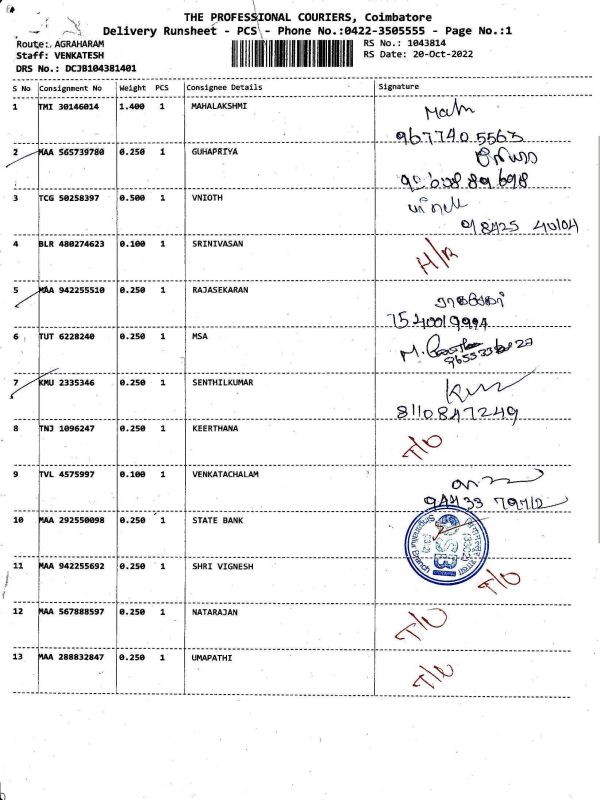 THE PROFESSIONAL COURIERS, Coimbatore
Delivery Runsheet - PCS - Phone No.:0422-3505555 - Page No.:1
Route: AGRAHARAM
RS No.: 1043814
Staff: VENKATESH
RS Date: 20-Oct-2022
DRS No.: DCJB104381401
S No Consignment No Weight PCS Consignee Details Signature
1 TMI 30146014 1.400 1 MAHALAKSHMI
967740 5563
2 MAA 565739780 0.250 1 GUHAPRIYA
3 TCG 50258397 0.500 1 VNIOTH
4 BLR 480274623 0.100 1 SRINIVASAN H/R
5 MAA 942255510 0.250 1 RAJASEKARAN
6 TUT 6228240 0.250 1 MSA
7 KMU 2335346 0.250 1 SENTHILKUMAR
8110847249
8 TNJ 1096247 0.250 1 KEERTHANA
9 TVL 4575997 0.100 1 VENKATACHALAM
10 MAA 292550098 0.250 1 STATE BANK
11 MAA 942255692 0.250 1 SHRI VIGNESH
12 MAA 567888597 0.250 1 NATARAJAN
13 MAA 288832847 0.250 1 UMAPATHI